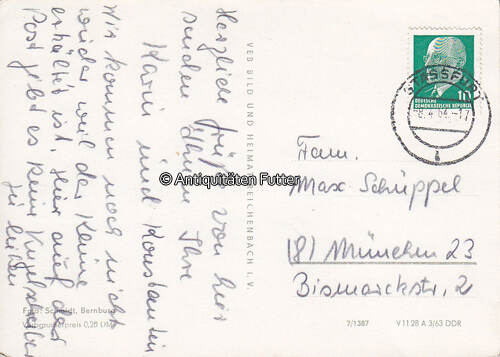 Herzliche Grüße von hier
senden Ihnen Ihre
Karin und Konstantin
Wir kommen noch nicht
wieder, weil der Kleine
erkältet ist. Hier auf der
Post gibt es kein Kugelschreiber
zu leihen
VEB BILD UND HEIMAT REICHENBACH I. V.
© Antiquitäten Futter
Foto: Schmidt, Bernburg
Verbraucherpreis 0,20 DM
STASSFURT
-8.4.64.-17
DEUTSCHE
DEMOKRATISCHE REPUBLIK
10
Fam.
Max Schüppel
(8) München 23
Bismarckstr. 2
7/1387 V 11 28 A 3/63 DDR